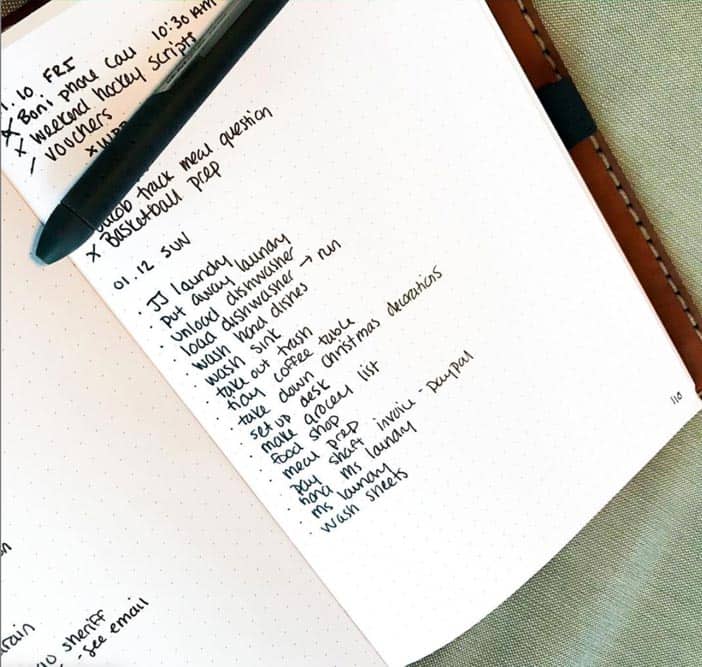 .10 FRI
x Boni phone call 10:30 AM
x weekend hockey scripts
- vouchers
x
Jacob track meal question
x Basketball prep
01.12 SUN
· JJ laundry
· put away laundry
· unload dishwasher
· load dishwasher → run
· wash hand dishes
· wash sink
· take out trash
· tidy coffee table
· take down christmas decorations
· set up desk
· make grocery list
· food shop
· meal prep
· pay shaft invoice - paypal
· hand ms laundry
· ms laundry
· wash sheets
110
sheriff
- see email